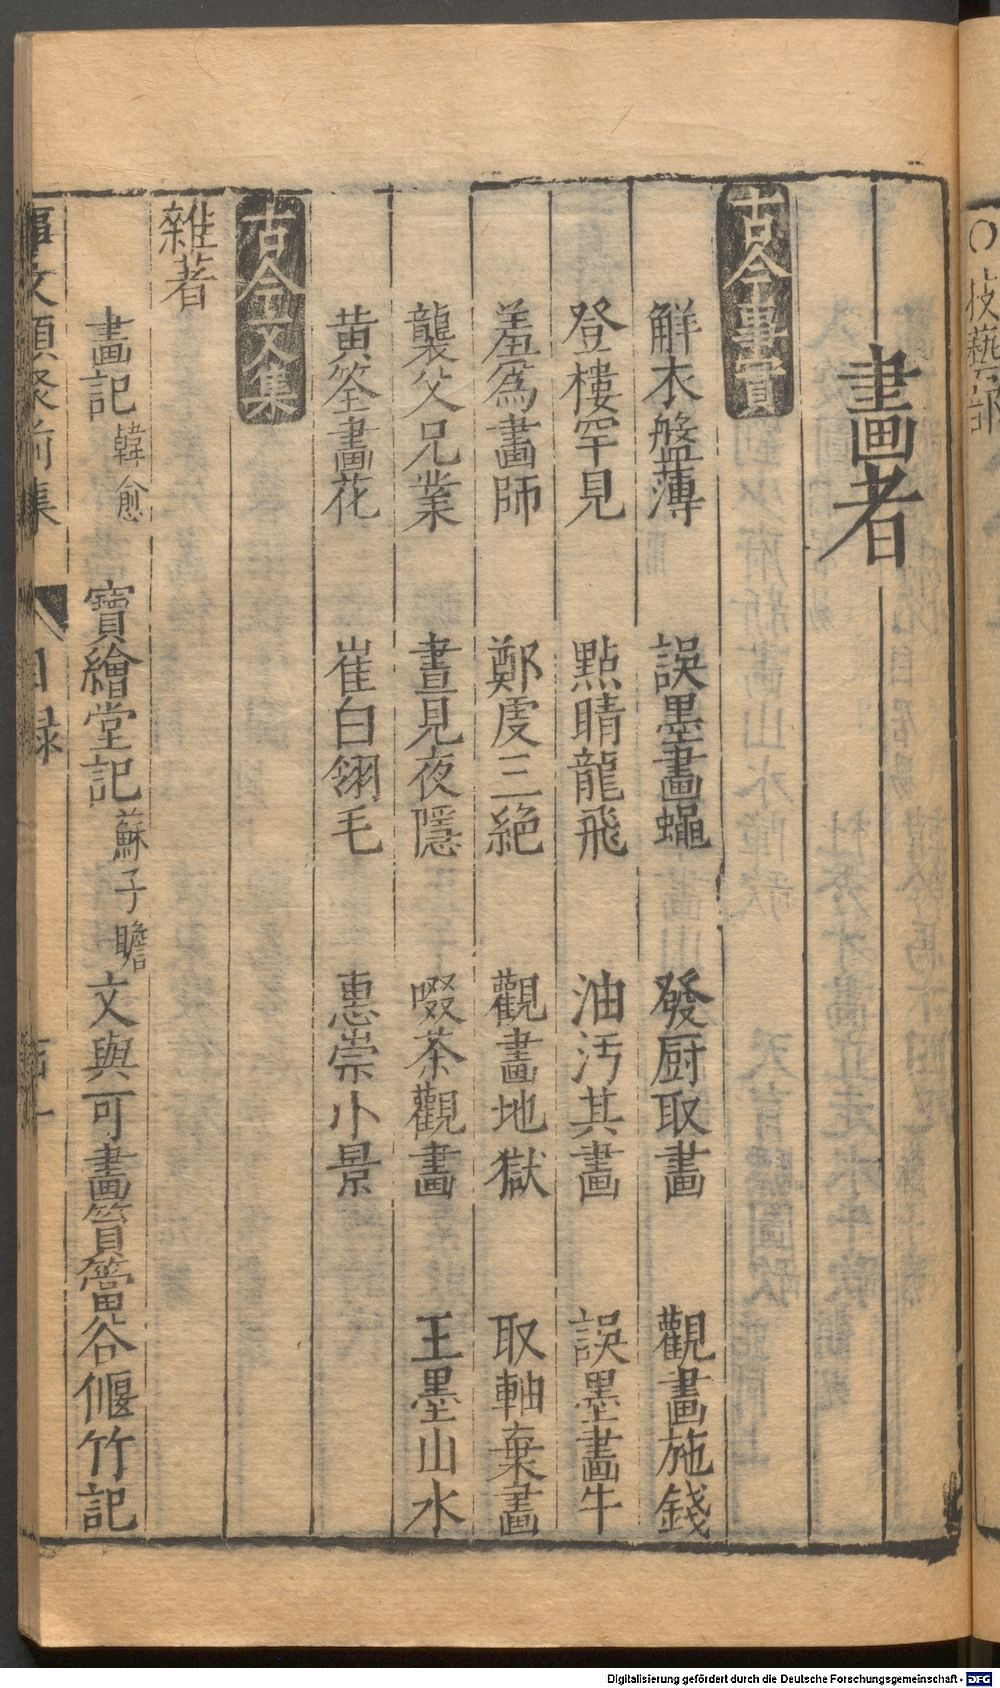 ○技藝部
畫者
古今事實
解衣盤薄 誤墨畫蠅 發厨取畫 觀畫施錢
登樓罕見 點睛龍飛 油汚其畫 誤墨畫牛
羞爲畫師 鄭虔三絶 觀畫地獄 取軸棄畫
襲父兄業 晝見夜隱 啜茶觀畫 王墨山水
黄筌畫花 崔白翎毛 惠崇小景
古今文集
雜著
畫記 韓愈 寶繪堂記 蘇子瞻 文與可畫篔簹谷偃竹記
事文類聚前集 目録
Digitalisierung gefördert durch die Deutsche Forschungsgemeinschaft - DFG